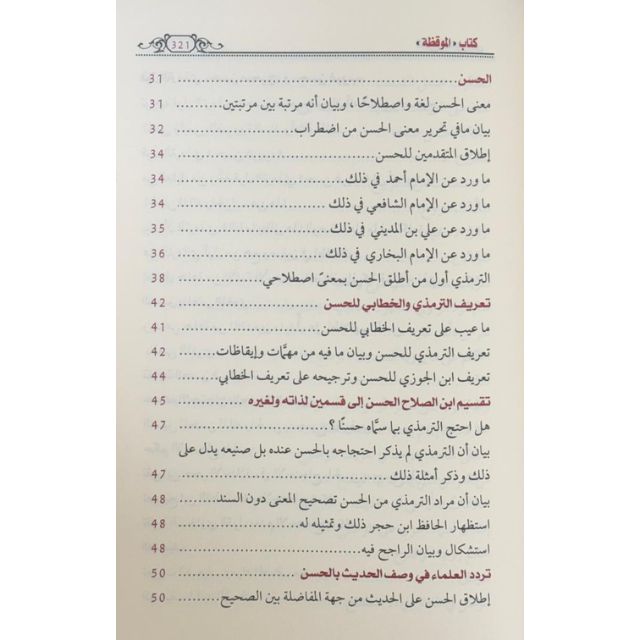 كتاب «الموقظة»
321
الحسن .......... 31
معنى الحسن لغة واصطلاحًا، وبيان أنه مرتبة بين مرتبتين .......... 31
بيان مافي تحرير معنى الحسن من اضطراب .......... 32
إطلاق المتقدمين للحسن .......... 34
ما ورد عن الإمام أحمد في ذلك .......... 34
ما ورد عن الإمام الشافعي في ذلك .......... 34
ما ورد عن علي بن المديني في ذلك .......... 35
ما ورد عن الإمام البخاري في ذلك .......... 36
الترمذي أول من أطلق الحسن بمعنىً اصطلاحي .......... 38
تعريف الترمذي والخطابي للحسن .......... 42
ما عيب على تعريف الخطابي للحسن .......... 41
تعريف الترمذي للحسن وبيان ما فيه من مهمَّات وإيقاظات .......... 42
تعريف ابن الجوزي للحسن وترجيحه على تعريف الخطابي .......... 44
تقسيم ابن الصلاح الحسن إلى قسمين لذاته ولغيره .......... 45
هل احتج الترمذي بما سمَّاه حسنًا؟ .......... 47
بيان أن الترمذي لم يذكر احتجاجه بالحسن عنده بل صنيعه يدل على
ذلك وذكر أمثلة ذلك .......... 47
بيان أن مراد الترمذي من الحسن تصحيح المعنى دون السند .......... 48
استظهار الحافظ ابن حجر ذلك وتمثيله له .......... 48
استشكال وبيان الراجح فيه .......... 48
تردد العلماء في وصف الحديث بالحسن .......... 50
إطلاق الحسن على الحديث من جهة المفاضلة بين الصحيح .......... 50